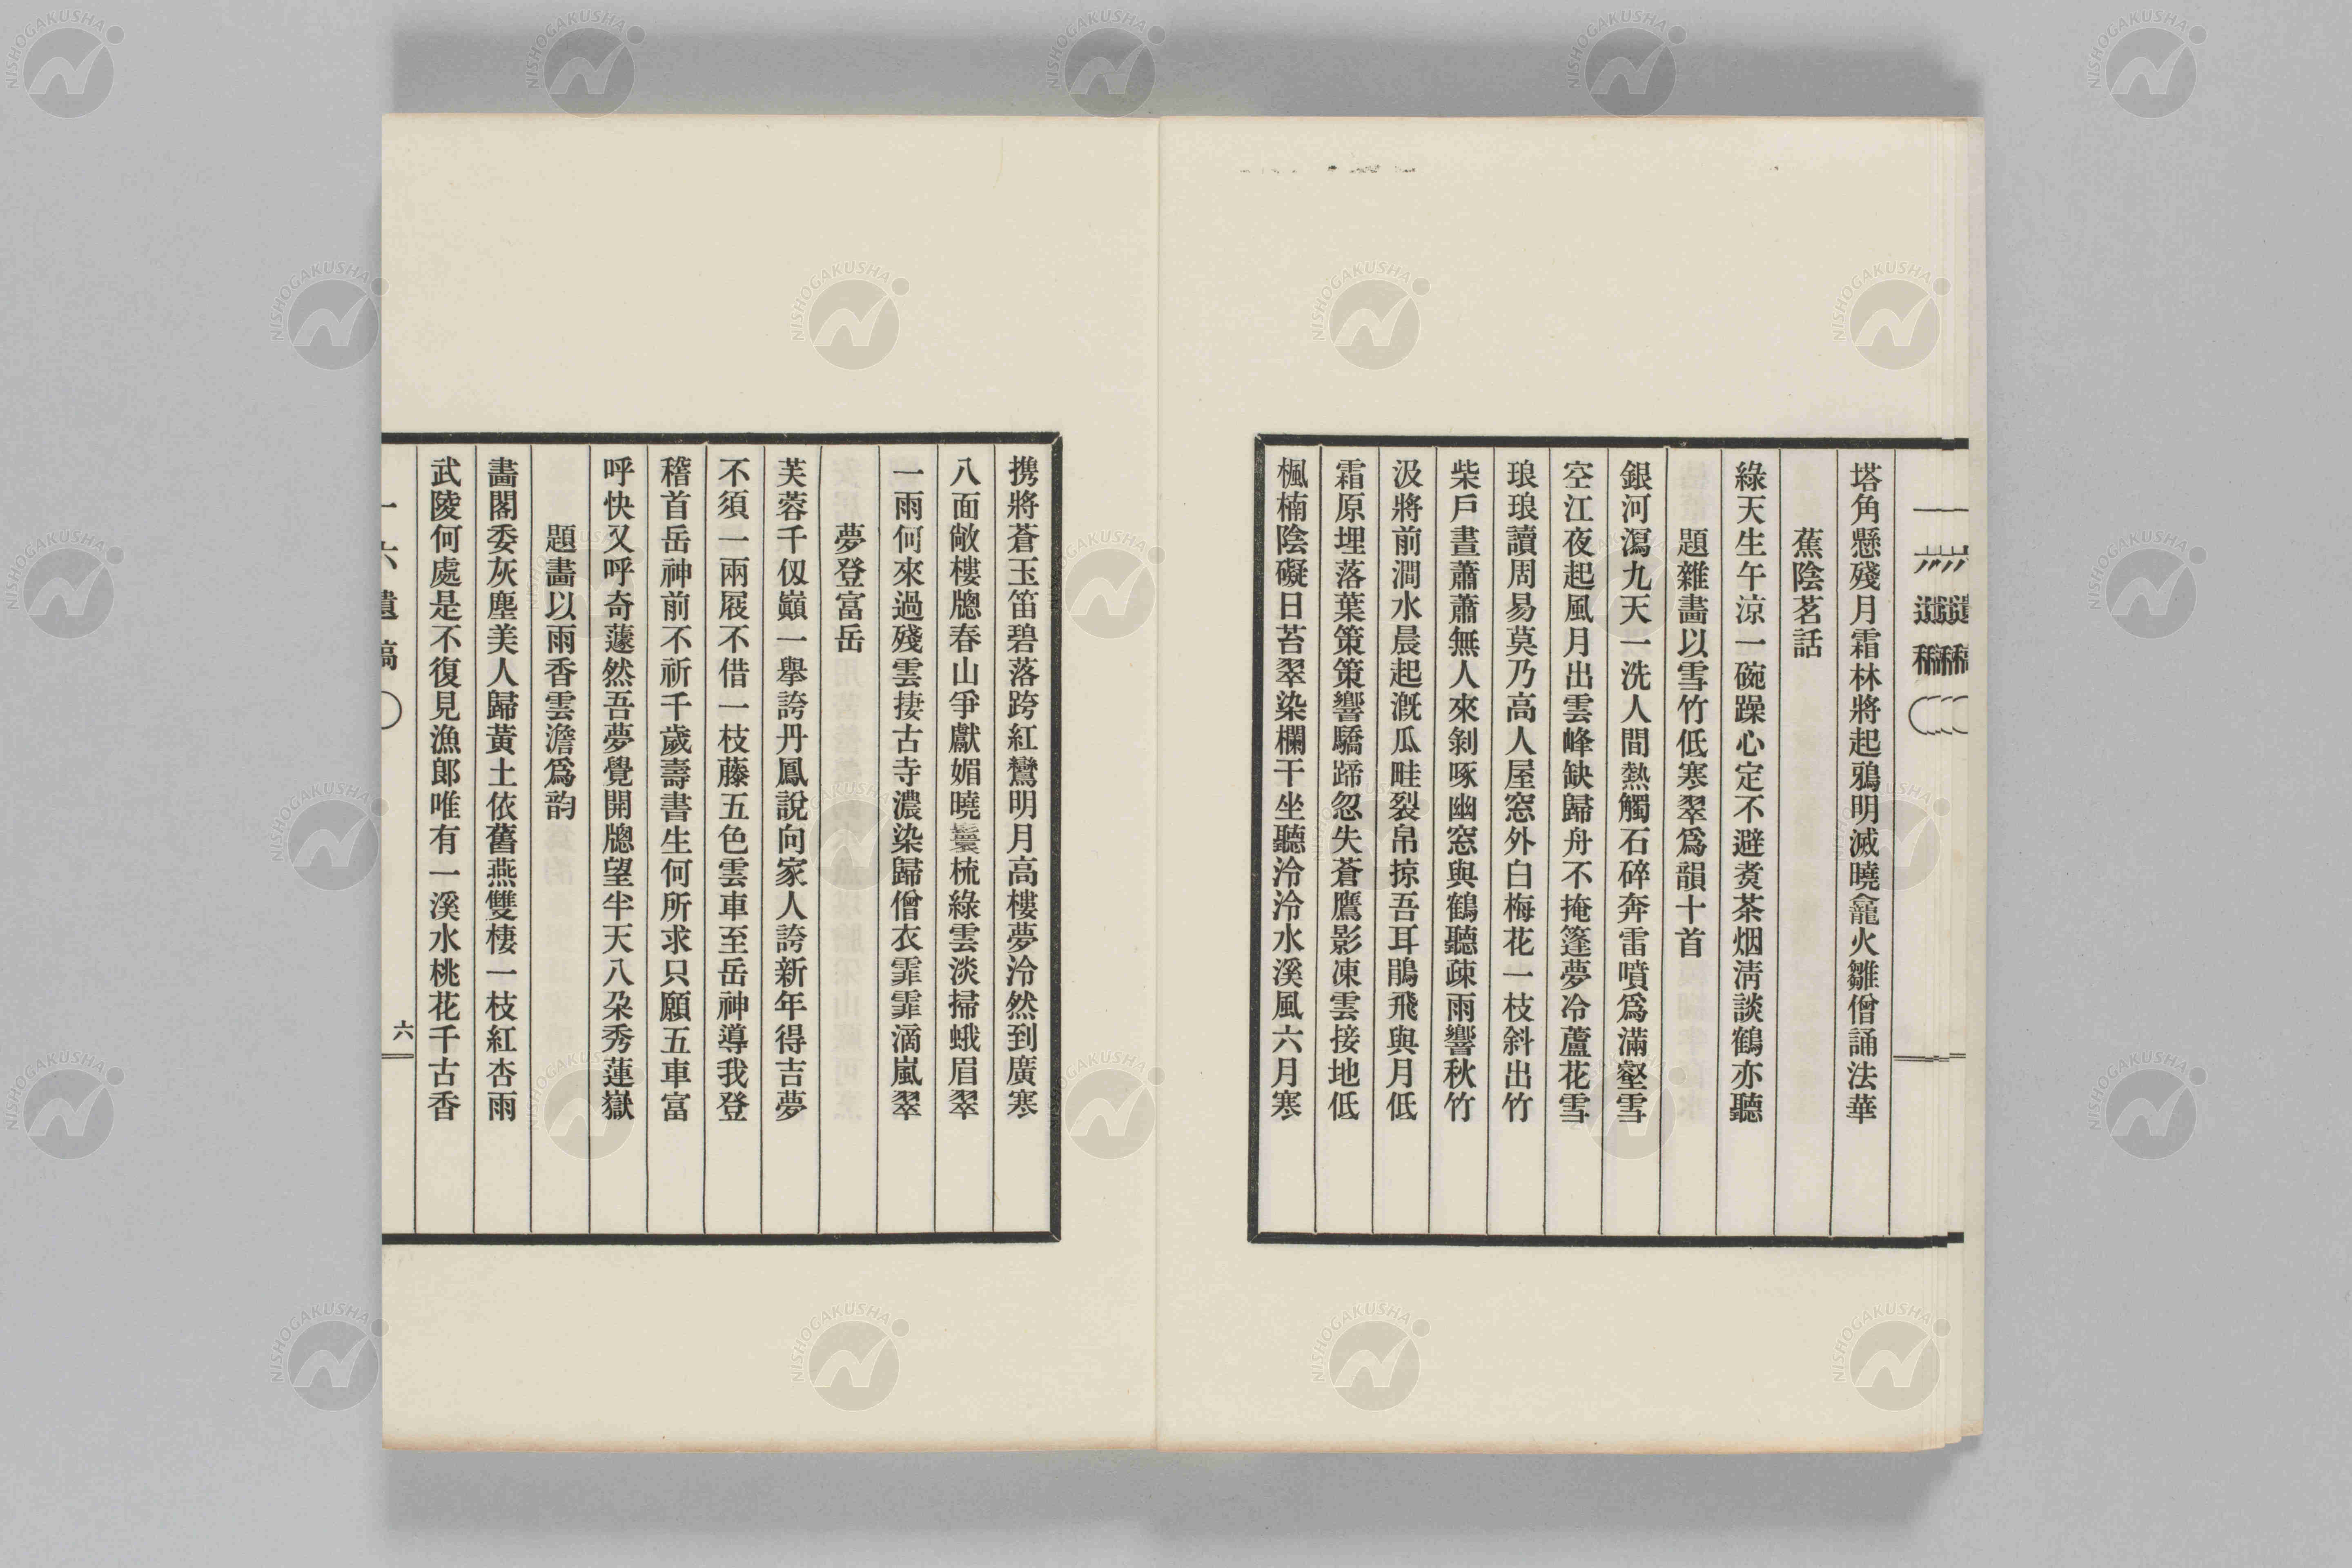 塔角懸殘月霜林將起鴉明滅曉龕火雛僧誦法華
蕉陰茗話
綠天生午涼一碗躁心定不避煑茶烟淸談鶴亦聽
題雜畵以雪竹低寒翠爲韻十首
銀河瀉九天一洗人間熱觸石碎奔雷噴爲滿壑雪
空江夜起風月出雲峰缺歸舟不掩篷夢冷蘆花雪
琅琅讀周易莫乃高人屋窓外白梅花一枝斜出竹
柴戶晝蕭蕭無人來剝啄幽窓與鶴聽疎雨響秋竹
汲將前澗水晨起漑瓜畦裂帛掠吾耳鵑飛與月低
霜原埋落葉策策響驕蹄忽失蒼鷹影凍雲接地低
楓楠陰礙日苔翠染欄干坐聽泠泠水溪風六月寒
携將蒼玉笛碧落跨紅鸞明月高樓夢泠然到廣寒
八面敞樓牕春山爭獻媚曉鬟梳綠雲淡掃蛾眉翠
一雨何來過殘雲捿古寺濃染歸僧衣霏霏滴嵐翠
夢登富岳
芙蓉千仭巓一擧誇丹鳳說向家人誇新年得吉夢
不須一兩屐不借一枝藤五色雲車至岳神導我登
稽首岳神前不祈千歲壽書生何所求只願五車富
呼快又呼奇蘧然吾夢覺開牕望半天八朶秀蓮嶽
題畵以雨香雲澹爲韵
畵閣委灰塵美人歸黃土依舊燕雙棲一枝紅杏雨
武陵何處是不復見漁郞唯有一溪水桃花千古香
一六遺稿
六
NISHOGAKUSHA